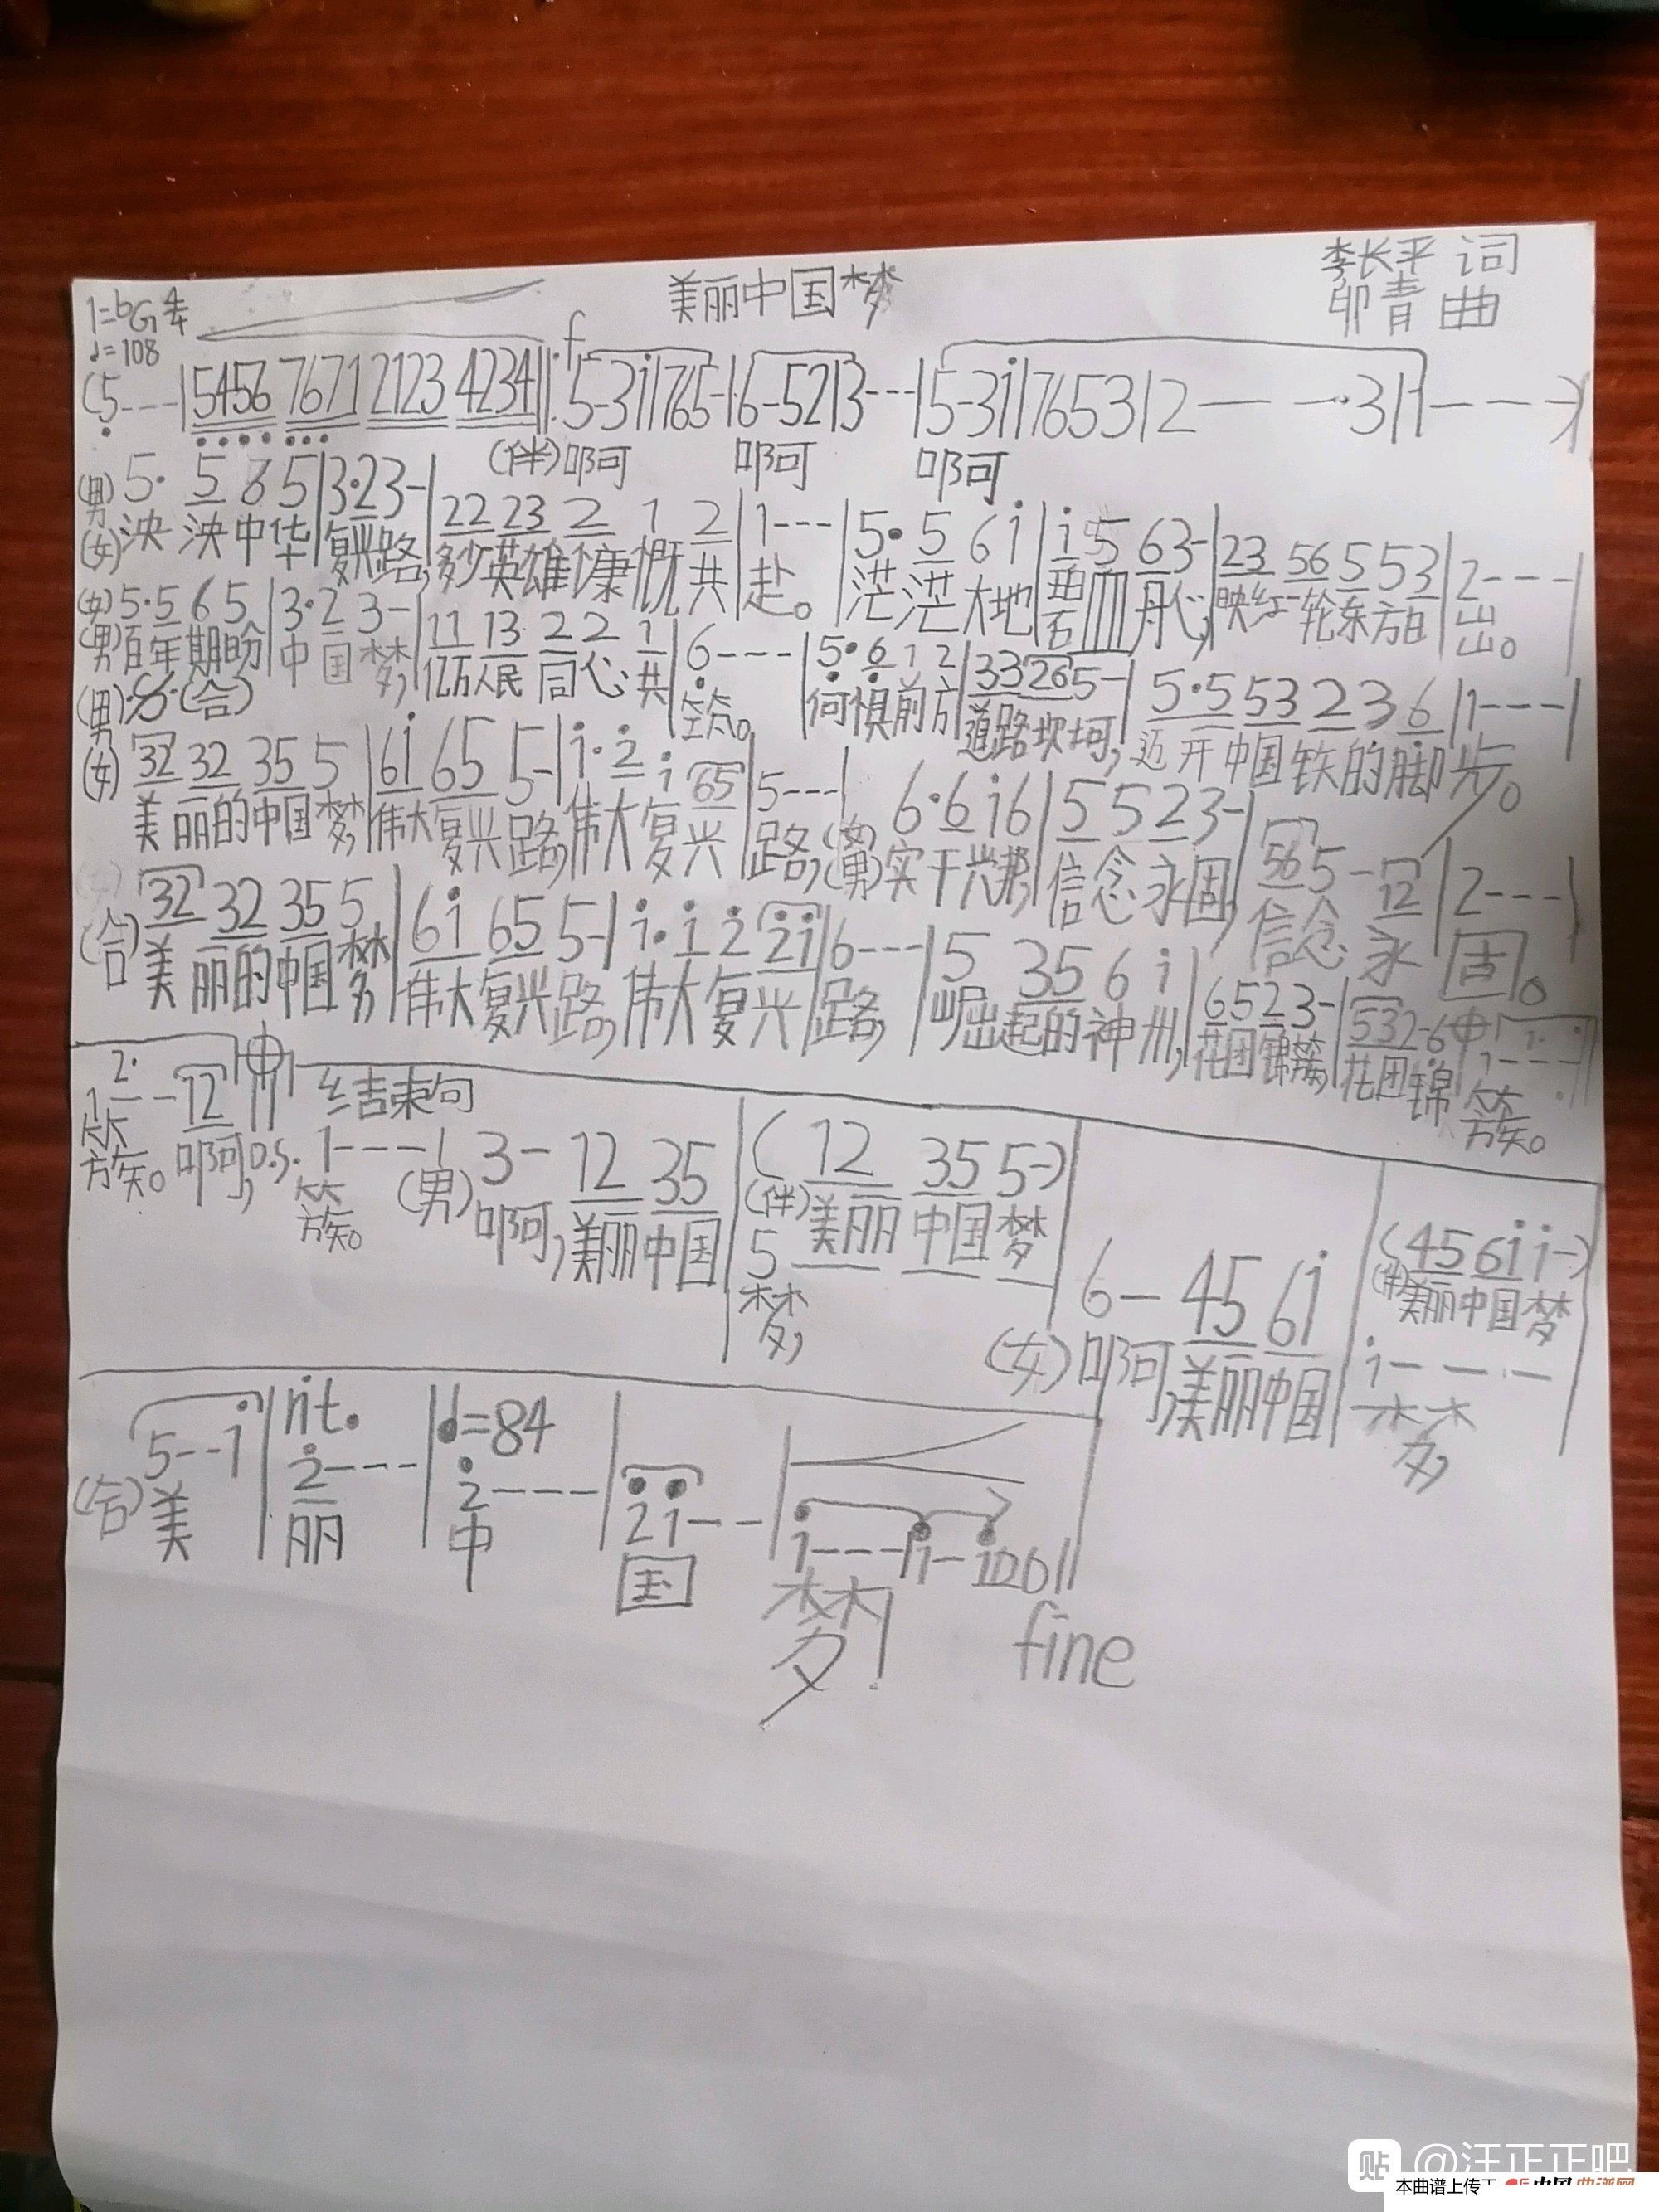 美丽中国梦
李长平 词
1=bG 4/4
卯青 曲
♩=108
f
(5---|5456 7671 2123 4234‖:5-3i|765-|6-52|3---|5-3i|7653|2---3|1----)
(伴)啊 啊 啊
(男) 5· 5 6 5|3·23-|22 23 2 1 2|1---|5·5 6 i|i 5 63-|23 56 5 53|2---|
(女)泱 泱中华|复兴路,多少英雄慷慨共|赴。茫茫大地|碧血丹心,映红一轮东方日|出。
(女)5·5 6 5|3·2 3-|11 13 2 2 1|6---|5·6 1 2|33 26 5-|5·5 53 2 3 6|1---|
(男)百年期盼|中国梦,亿万人民同心共|筑。何惧前方|道路坎坷,迈开中国铁的脚步。
(男)·𝄋·(合)
(女) 32 32 35 5|6i 65 5-|i·2 i 65|5---|6·6 i6|5 5 2 3-|56 5-12|2---|
美丽的中国梦,伟大复兴路,伟大复兴|路,(女)(男)实干兴邦,信念永固,信念永固。
(合) 32 32 35 5|6i 65 5-|i·i 2 2i|6---|5 35 6 i|6523-|532-6|1---:‖
美丽的中国梦|伟大复兴路,伟大复兴|路,崛起的神州,花团锦簇,花团锦簇。
2.
1---12 结束句
簇。啊,D.S. 1---|(男)3-12 35|(12 35 5-)
簇。啊,美丽中国 (伴)美丽中国梦
5---
梦,
6-45 6i|(45 6i i-)
(女)啊,美丽中国 (伴)美丽中国梦
i---
梦,
rit. ♩=84
5--i|2---|2---|2i--|i---|i-i00‖
(合)美 丽 中 国 梦!
fine
贴 @汪正正吧
本曲谱上传于 中国曲谱网